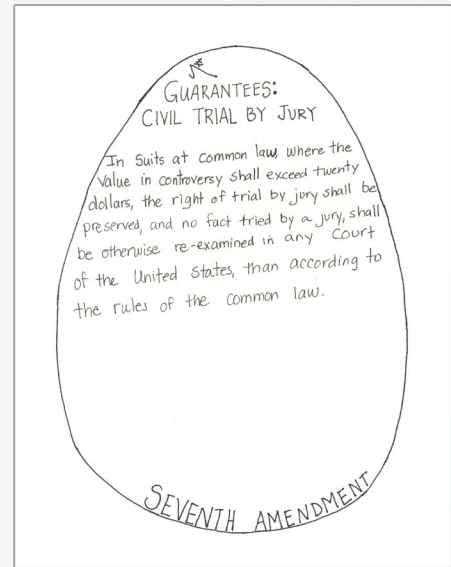 GUARANTEES:
CIVIL TRIAL BY JURY
In Suits at common law, where the
value in controversy shall exceed twenty
dollars, the right of trial by jury shall be
preserved, and no fact tried by a jury, shall
be otherwise re-examined in any Court
of the United States, than according to
the rules of the common law.
SEVENTH AMENDMENT